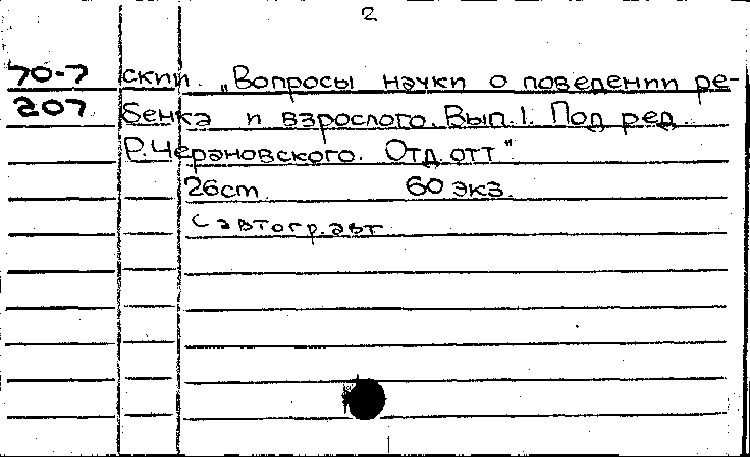 2
70-7 ский. „Вопросы науки о поведении ре-
207 бенка и взрослого. Вып. 1. Под ред.
Р. Черановского. Отд. отт"
26cm 60 экз.
С автогр. авт